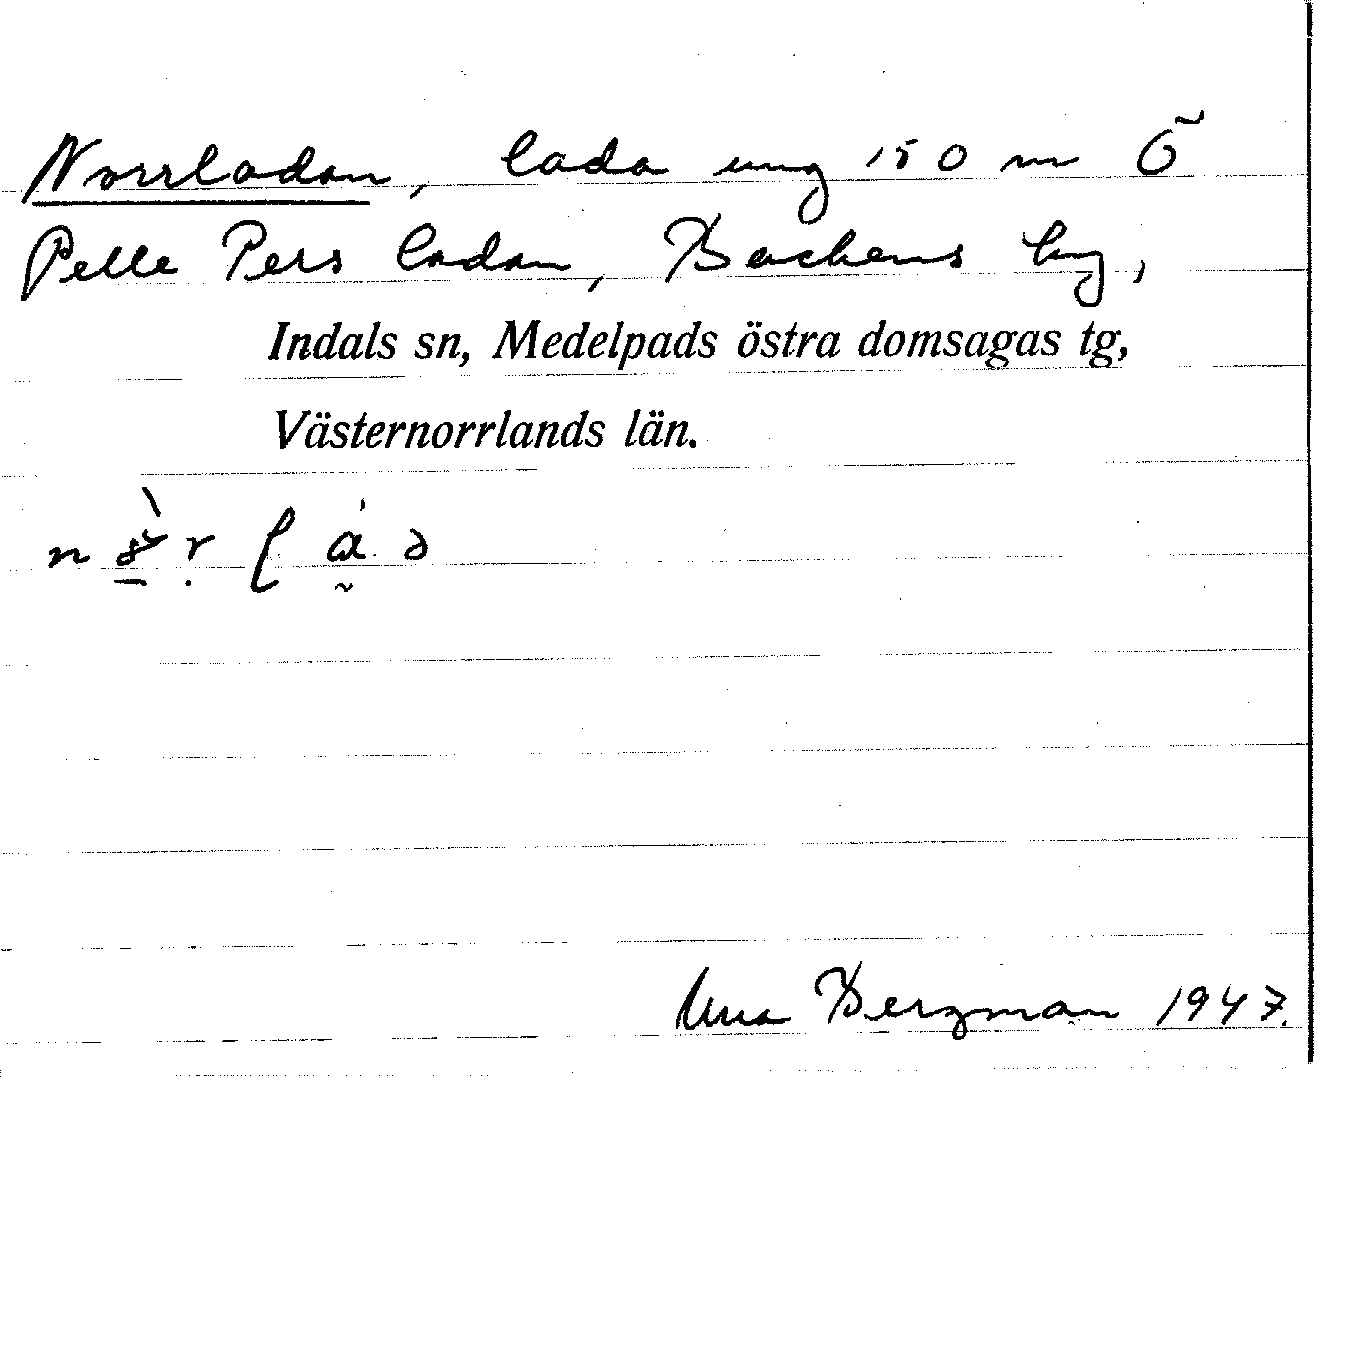 Norrladan, lada ung 150 m Ö
Pelle Pers ladan, Backens by,
Indals sn, Medelpads östra domsagas tg,
Västernorrlands län.
Una Bergman 1947.